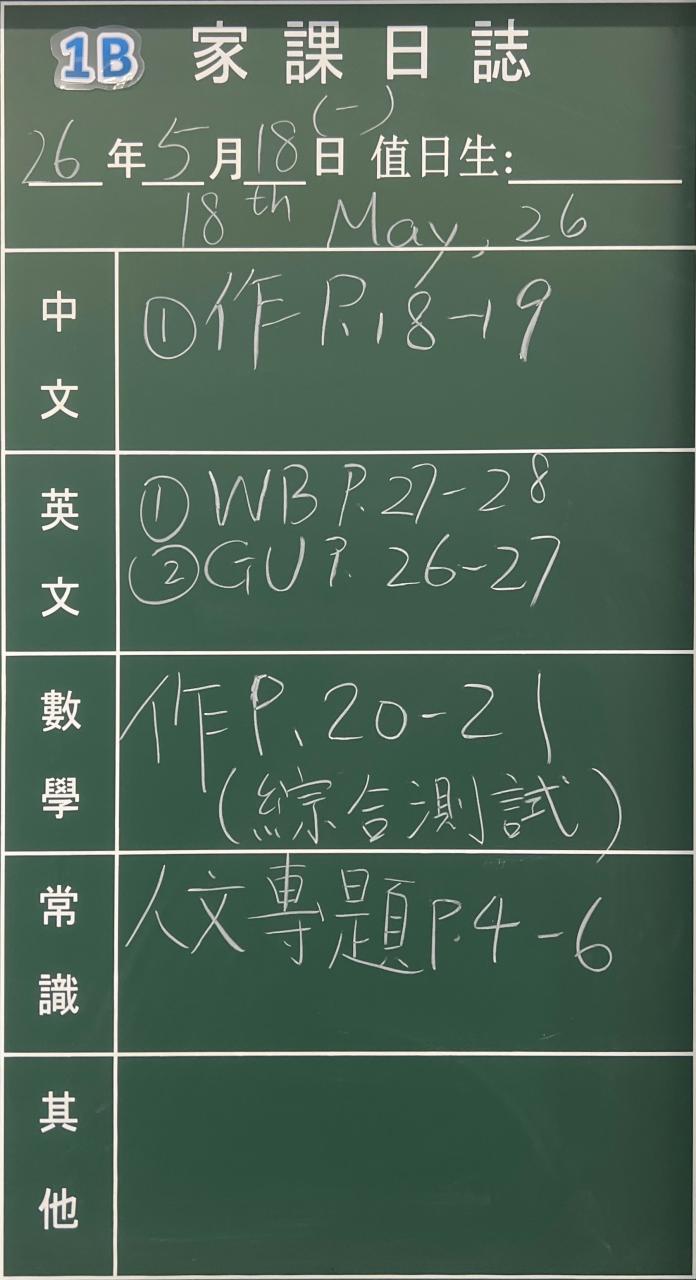 1B 家課日誌
26年5月18日(一) 值日生:
18th May, 26
中文
①作 P.18-19
英文
①WB P.27-28
②GU P. 26-27
數學
作P.20-21
(綜合測試)
常識
人文專題P.4-6
其他